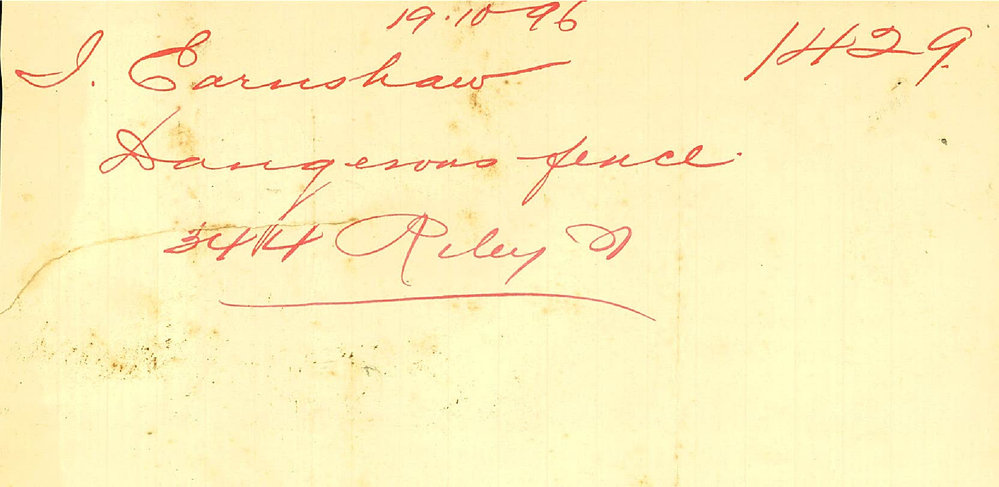 19.10.96
1429.
I. Earnshaw
Dangerous fence.
344 Riley St